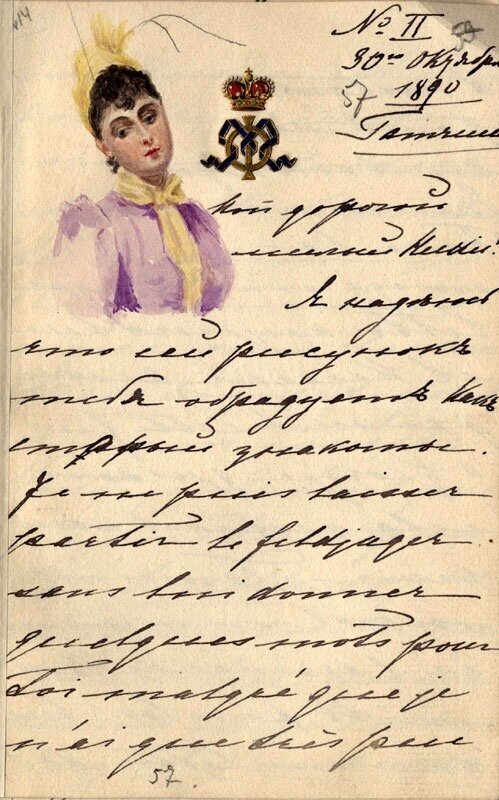 № II
30го Октября
1890
Гатчина
57
Мой дорогой
милый Ники!
Я надѣюсь
что сей рисунокъ
тебя обрадуетъ какъ
старый знакомый.
Je ne puis laisser
partir le feldjäger
sans lui donner
quelques mots pour
Toi malgré que je
n'ai que très peu
57